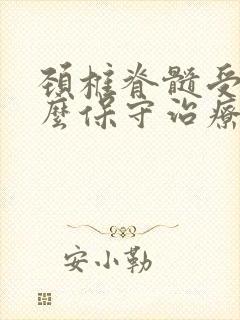 頚椎脊髓受
麼保守治療
安小勒